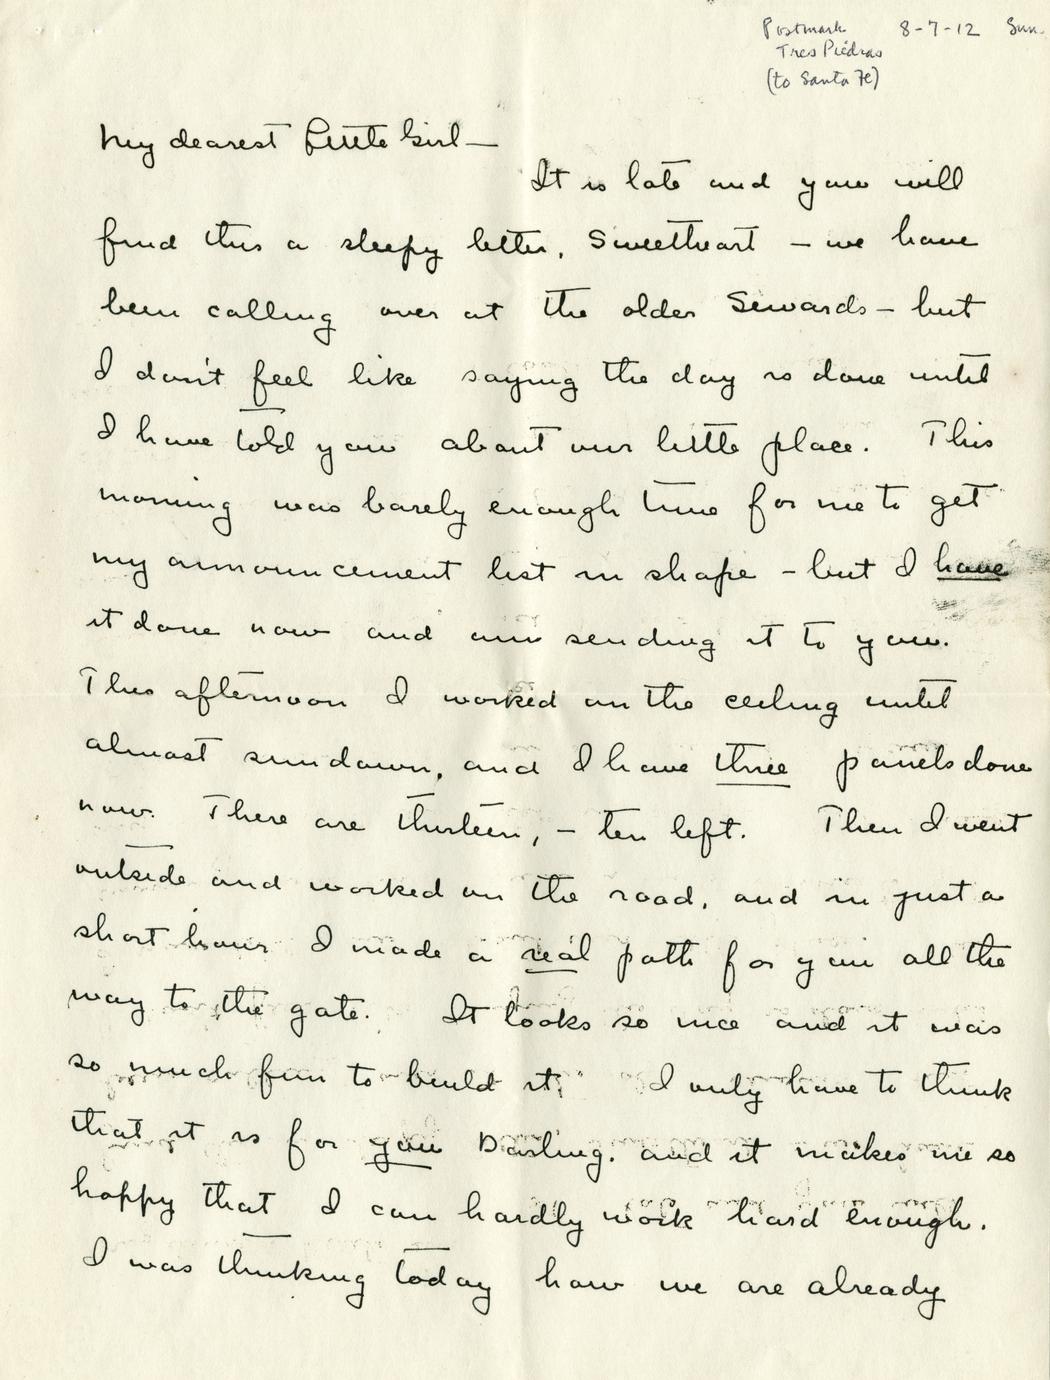 Postmark 8-7-12 Sun.
Tres Piedras
(to Santa Fe)
My dearest Little Girl—
It is late and you will
find this a sleepy letter, Sweetheart – we have
been calling over at the older Sewards – but
I don't feel like saying the day is done until
I have told you about our little place. This
morning was barely enough time for me to get
my announcement list in shape – but I have
it done now and am sending it to you.
This afternoon I worked on the ceiling until
almost sundown, and I have three panels done
now. There are thirteen, – ten left. Then I went
outside and worked on the road, and in just a
short hour I made a real path for you all the
way to the gate. It looks so nice and it was
so much fun to build it, I only have to think
that it is for you Darling. and it makes me so
happy that I can hardly work hard enough.
I was thinking today how we are already